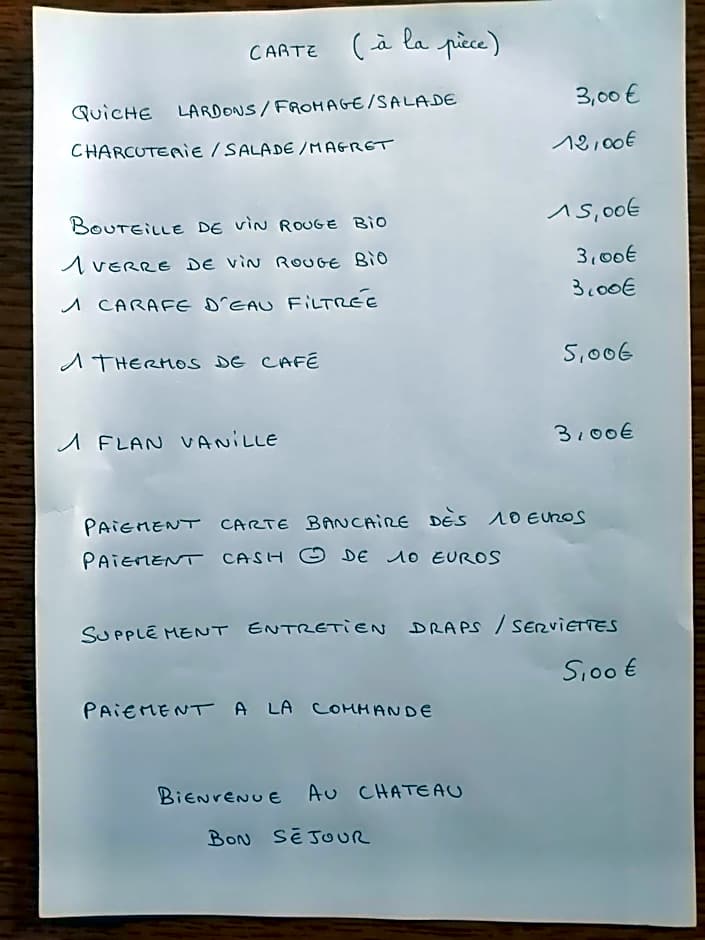 CARTE (à la pièce)
QUICHE LARDONS/FROMAGE/SALADE 3,00€
CHARCUTERIE/SALADE/MAGRET 12,00€
BOUTEILLE DE VIN ROUGE BIO 15,00€
1 VERRE DE VIN ROUGE BIO 3,00€
1 CARAFE D'EAU FILTRÉE 3,00€
1 THERMOS DE CAFÉ 5,00€
1 FLAN VANILLE 3,00€
PAIEMENT CARTE BANCAIRE DÈS 10 EUROS
PAIEMENT CASH ⊖ DE 10 EUROS
SUPPLÉMENT ENTRETIEN DRAPS / SERVIETTES
5,00€
PAIEMENT A LA COMMANDE
BIENVENUE AU CHATEAU
BON SÉJOUR